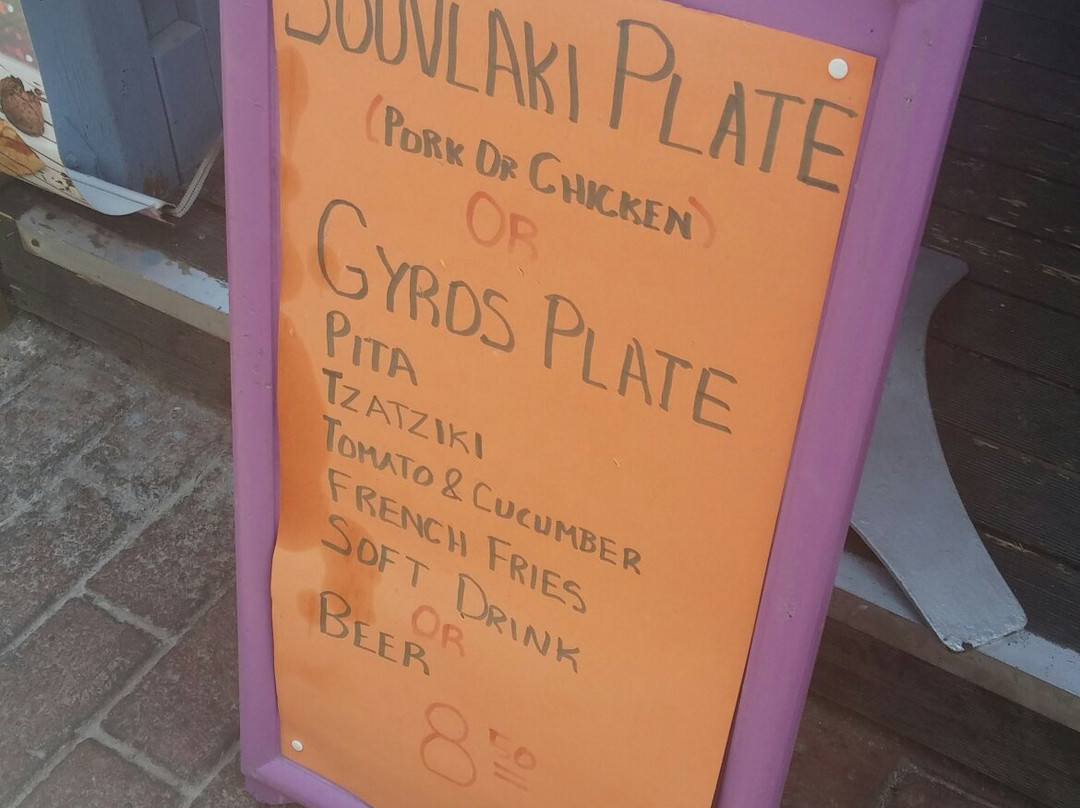 SOUVLAKI PLATE
(PORK OR CHICKEN)
OR
GYROS PLATE
PITA
TZATZIKI
TOMATO & CUCUMBER
FRENCH FRIES
SOFT DRINK
OR
BEER
8 50